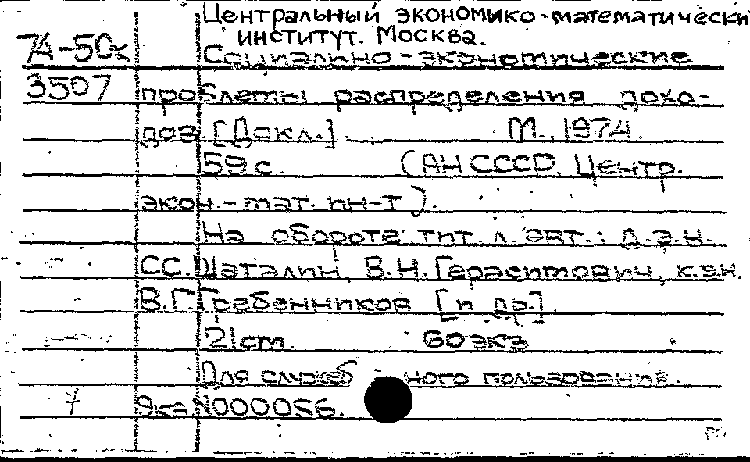 Центральный экономико-математически
институт. Москва.
74-50к Социально-экономические
3507 проблемы распределения дохо-
дов [Докл.] М., 1974.
59 с. (АН СССР. Центр.
экон.-мат. ин-т).
На обороте тит. л. авт.: д.э.н.
С.С. Шаталин, В.Н. Герасимович, к.э.н.
В.Г. Гребенников [и др.]
21 cm. 60 экз
Для служеб - ного пользования.
7 Экз N000056.